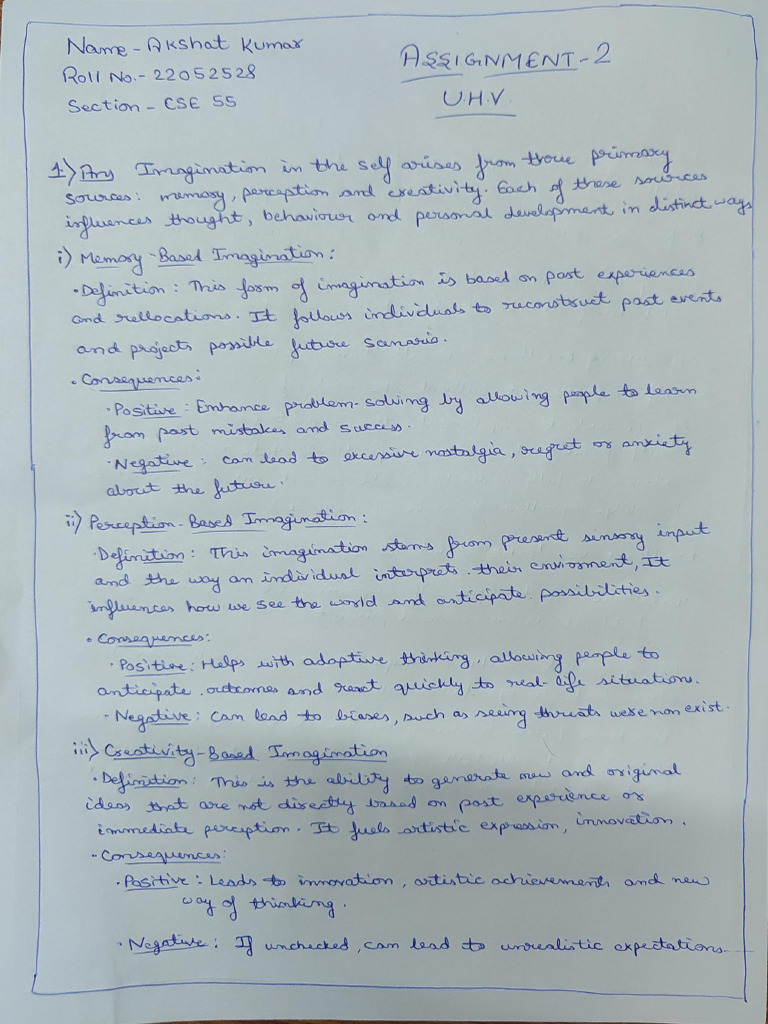 Name - Akshat Kumar
ASSIGNMENT-2
Roll No.- 22052528
Section - CSE 55
U.H.V.
1) Ans Imagination in the self arises from three primary
sources: memory, perception and creativity. Each of these sources
influences thought, behaviour and personal development in distinct ways
i) Memory-Based Imagination:
• Definition: This form of imagination is based on past experiences
and rellocations. It follows individuals to reconstruct past events
and projects possible future scenario.
• Consequences:
• Positive: Enhance problem-solving by allowing people to learn
from past mistakes and success.
• Negative: can lead to excessive nostalgia, regret or anxiety
about the future.
ii) Perception-Based Imagination:
• Definition: This imagination stems from present sensory input
and the way an individual interprets. their enviorment, It
influences how we see the world and anticipate. possibilities.
• Consequences:
• Positive: Helps with adaptive thinking, allowing people to
anticipate. outcomes and react quickly to real-life situation.
• Negative: can lead to biases, such as seeing threats were non exist.
iii) Creativity-Based Imagination
• Definition: This is the ability to generate new and original
ideas that are not directly based on past experience or
immediate perception. It fuels artistic expression, innovation.
• Consequences:
• Positive: Leads to innovation, artistic achievements and new
way of thinking.
• Negative: If unchecked, can lead to unrealistic expectations.